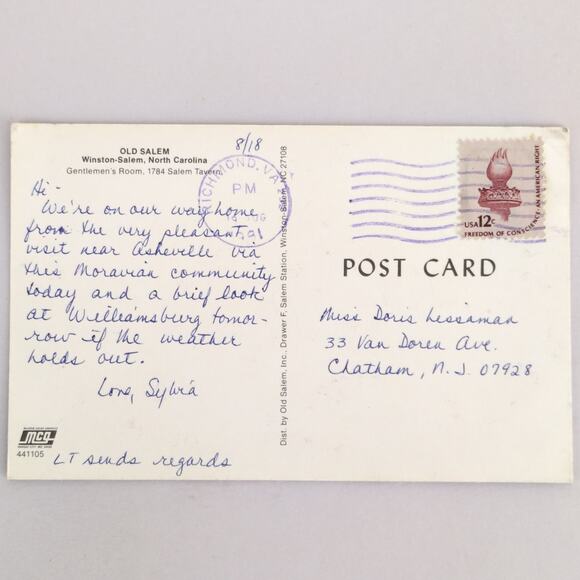 OLD SALEM
Winston-Salem, North Carolina
Gentlemen's Room, 1784 Salem Tavern.
8/18
Hi -
We're on our way home
from the very pleasant
visit near Asheville via
this Moravian community
today and a brief look
at Williamsburg tomor-
row if the weather
holds out.
Love, Sylvia
LT sends regards
MCG
441105
Dist. by Old Salem, Inc., Drawer F, Salem Station, Winston-Salem, NC 27108
RICHMOND, VA
PM
USA 12c
FREEDOM OF CONSCIENCE-AN AMERICAN RIGHT
POST CARD
Miss Doris Lissaman
33 Van Doren Ave.
Chatham, N.J. 07928